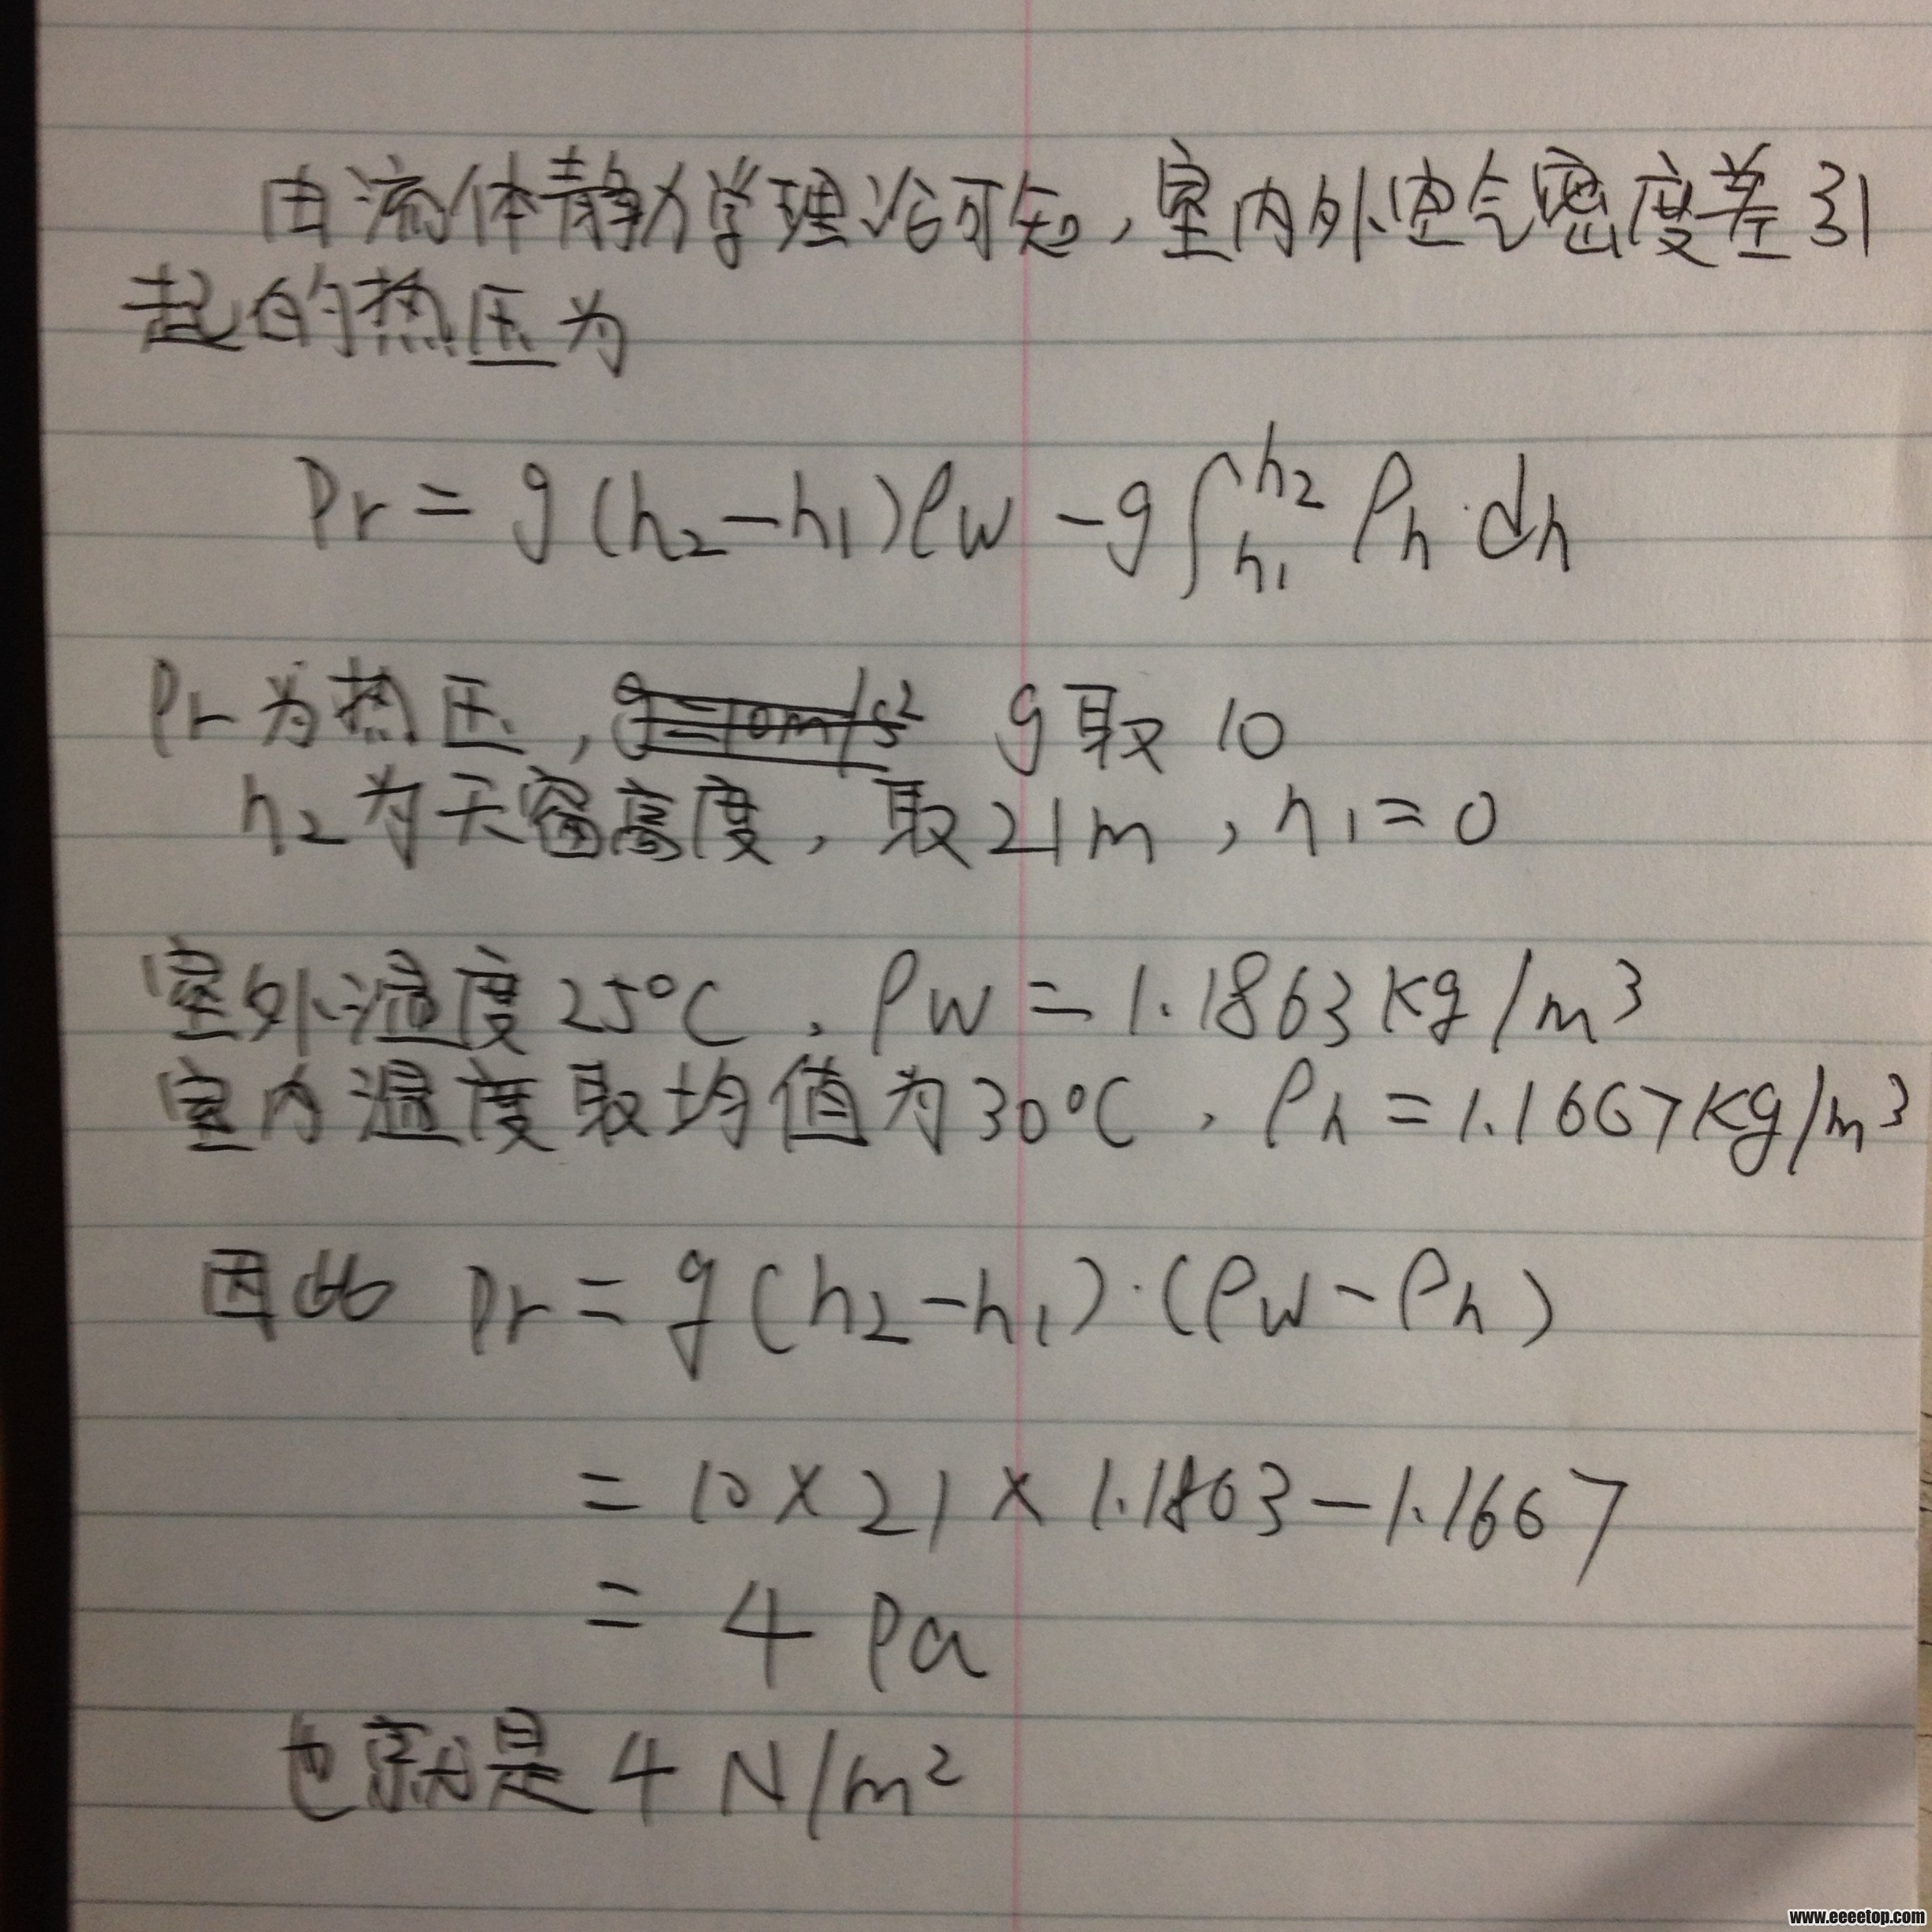 由流体静力学理论可知，室内外空气密度差引
起的热压为
Pr = g(h₂-h₁)ρw -g∫h₁^h₂ ρh·dh
Pr为热压，g=10m/s² g取10
h₂为天窗高度，取21m，h₁=0
室外温度25°C，ρw = 1.1863Kg/m³
室内温度取均值为30°C，ρh = 1.1667Kg/m³
因此 Pr = g(h₂-h₁)·(ρw-ρh)
= 10×21×1.1863-1.1667
= 4 Pa
也就是4 N/m²
www.eeeetop.com